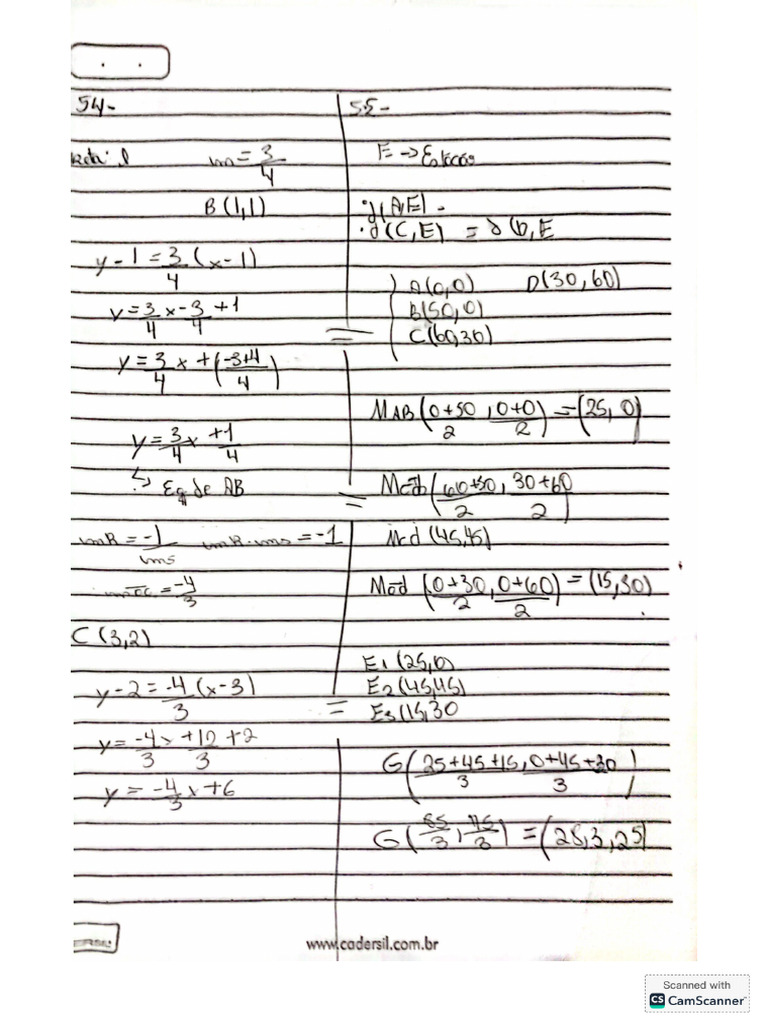 54-
m = 3/4
B (1,1)
y - 1 = 3/4 (x - 1)
y = 3/4 x - 3/4 + 1
y = 3/4 x + (-3+4/4)
y = 3/4 x + 1/4
↳ Eq de AB
mR = -1/ms mR . ms = -1
= -4/3
C (3,2)
y - 2 = -4/3 (x - 3)
y = -4/3 x + 12/3 + 2
y = -4/3 x + 6
55-
E →
d(A,E) -
d(C,E) = d(D,E
A(0,0) D(30,60)
B(50,0)
C(60,30)
MAB (0+50/2 , 0+0/2) = (25, 0)
Mcd (60+30/2 , 30+60/2)
Mcd (45,45)
Mad (0+30/2 , 0+60/2) = (15,30)
E1 (25,0)
E2 (45,45)
E3 (15,30
G (25+45+15/3 , 0+45+30/3)
G (85/3 , 75/3) = (28,3,25)
www.cadersil.com.br
Scanned with
CS CamScanner